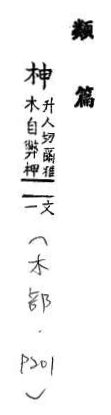 類篇
柛
升人切爾雅
木自弊柛
文
一
（木部．P201）